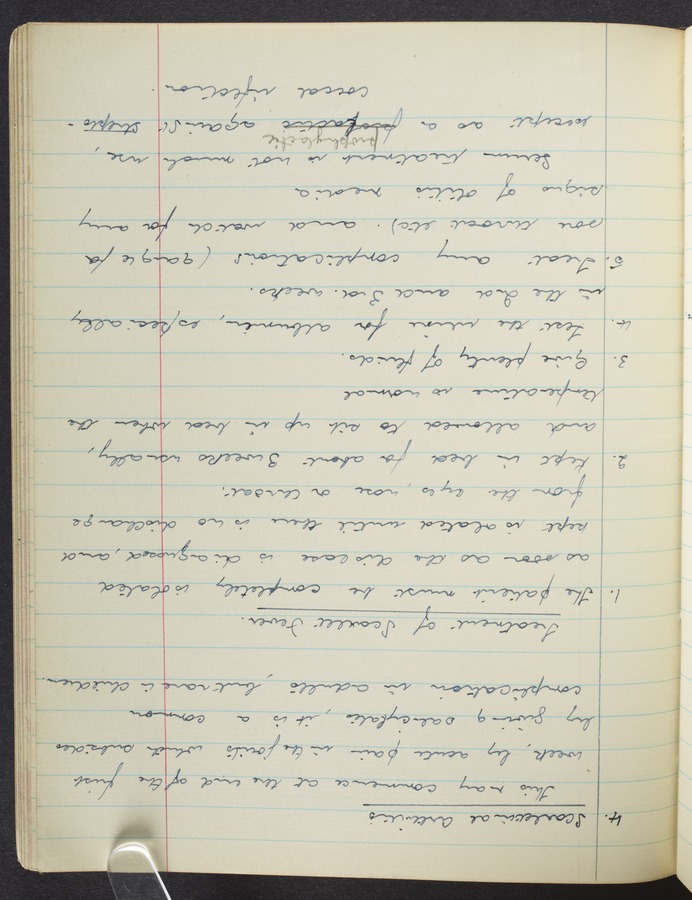 4. Scarlatinal Arthritis
This may commence at the end of the first
week, by acute pain in the joints which subsides
by giving salicylates, it is a common
complication in adults, but rare in children.
Treatment of Scarlet Fever.
1. The patient must be completely isolated
as soon as the disease is diagnosed, and
kept isolated until there is no discharge
from the eyes, nose or throat.
2. Kept in bed for about 3 weeks usually,
and allowed to sit up in bed when the
temperature is normal
3. Give plenty of fluids.
4. Test the urine for albumin, especially
in the 2nd and 3rd. weeks.
5. Treat any complications (gargle for
sore throat etc). and watch for any
signs of otitis media
Serum treatment is not much use,
prophylactic
except as a against strepto-
coccal infection.